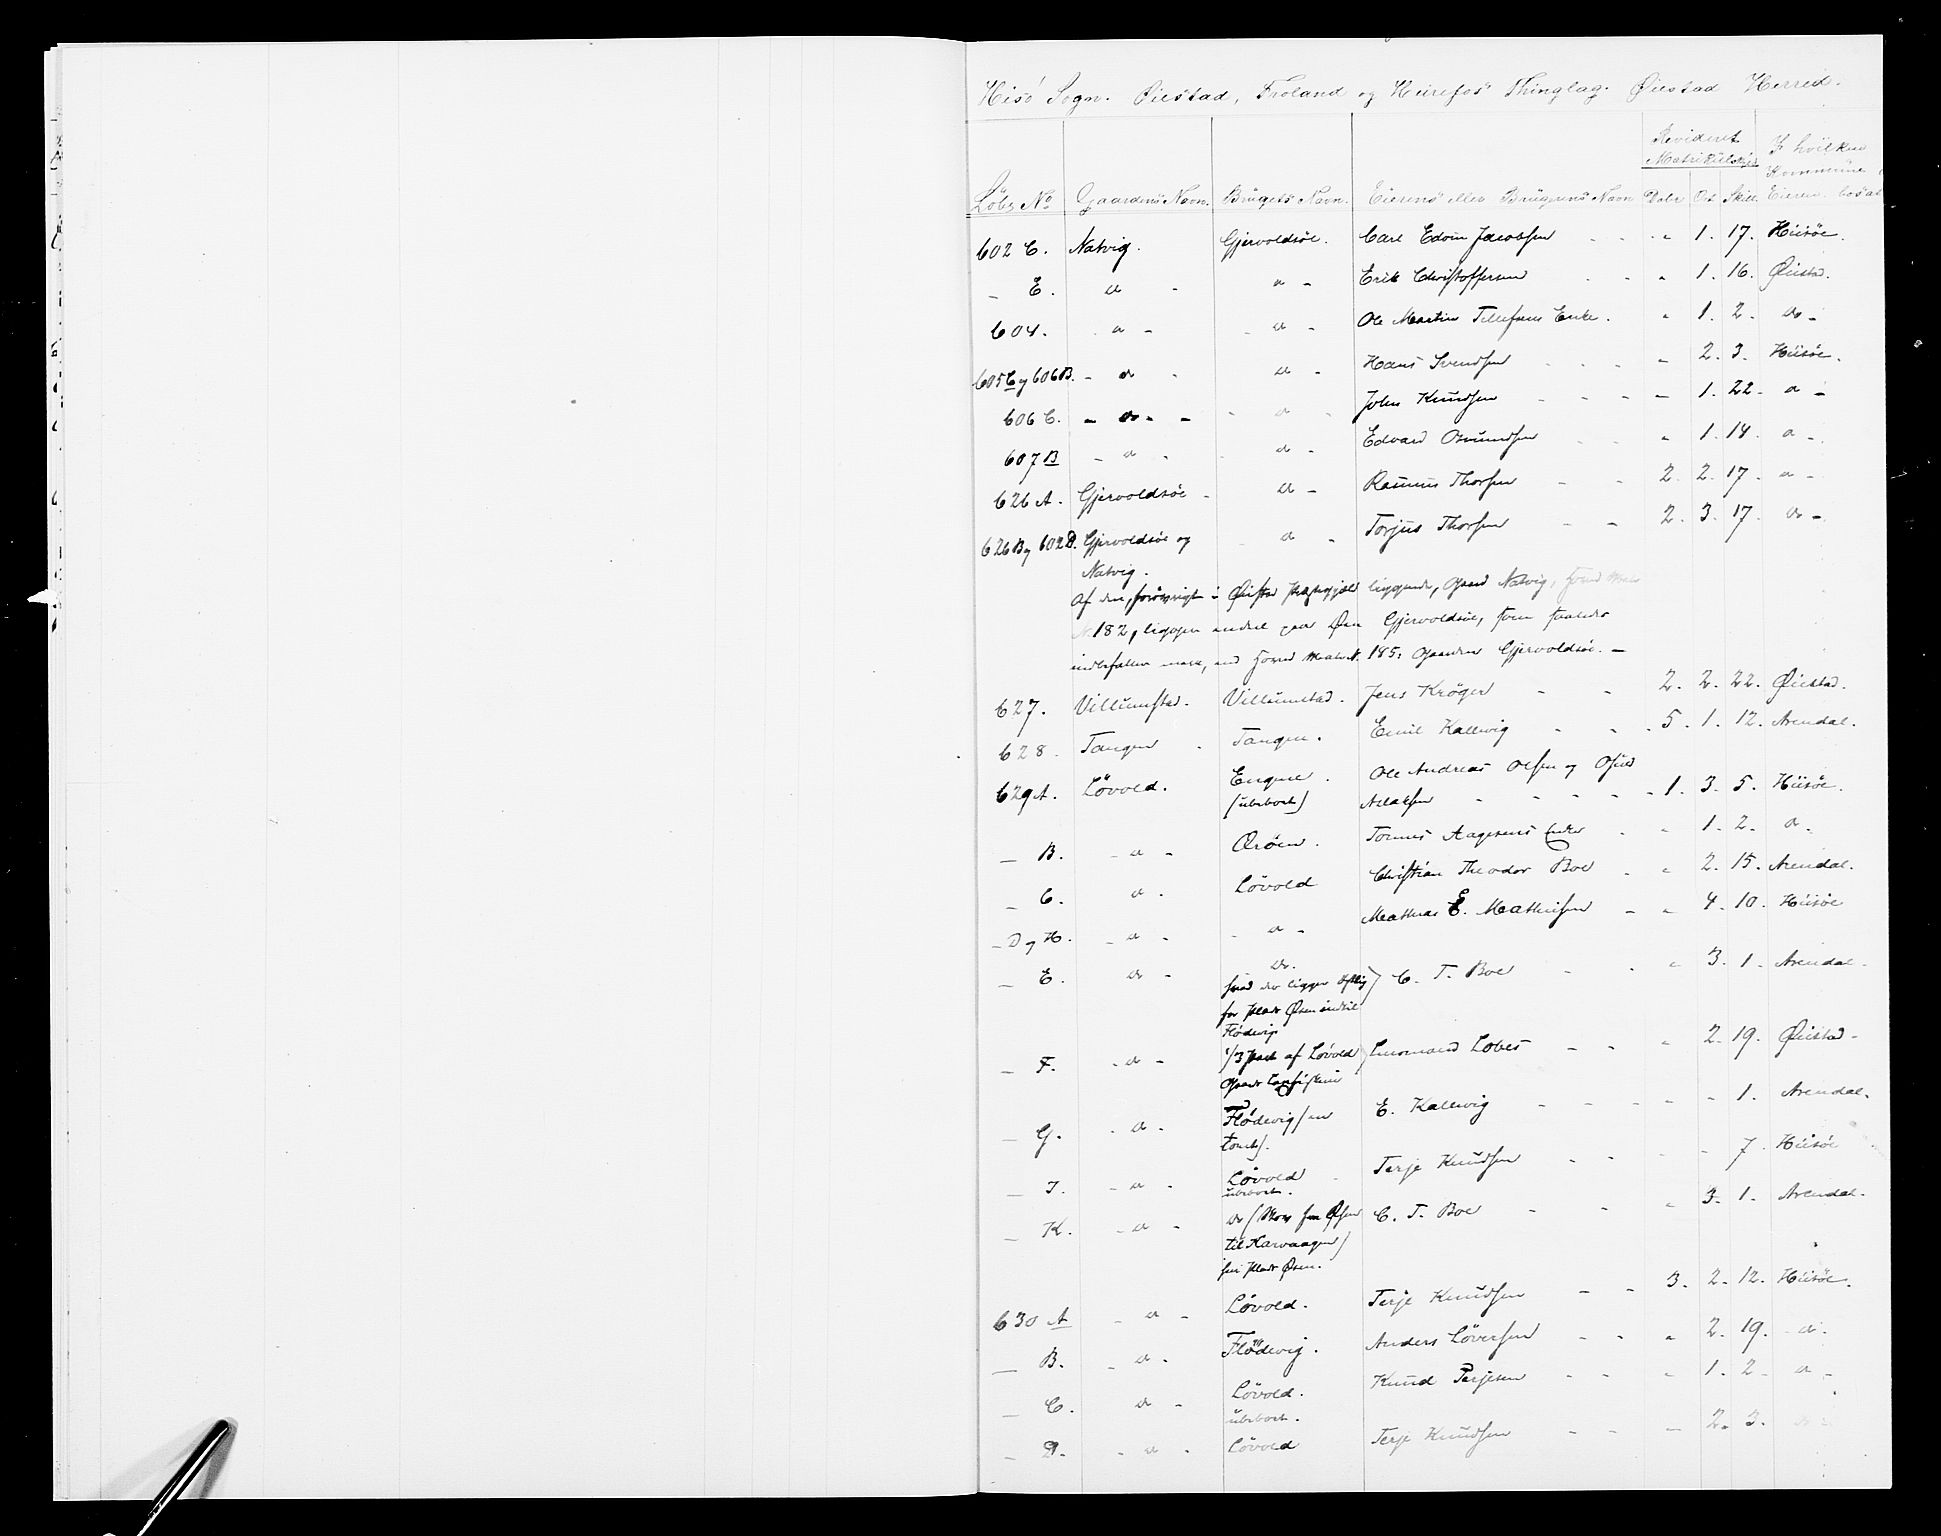 Hisö Sogn. Øiestad, Froland og Heirefos Thinglag. Øiestad Herred.
Revideret Matrikulskyld
I hvilken Kommune
Löbe No Gaardens Navn. Brugets Navn. Eierens eller Brugerens Navn Daler Ort Skill. Eieren bosat
602 C. Natvig. Gjervoldsöe. Carl Edvin Jacobsen - - - " 1. 17. Hiisöe.
- E. do - do - Erik Christoffersen - - " 1. 16. Øiestad.
604. do - do - Ole Martin Tellefsens Enke. " 1. 2. do -
605 C og 606 B. - do - do - Hans Svendsen - - - " 2. 3. Hiisöe.
606 C. - do - - do - John Knudsen - - - " 1. 22. do -
607 B - do - do - Edvard Osmundsen - - " 1. 14. do -
626 A. Gjervoldsöe - do - Rasmus Thorsen - - 2. 2. 17. do -
626 B og 602 D. Gjervoldsöe og - do - Torjus Thorsen - - 2. 3. 17. do -
Natvig.
Af den, forövrigt i Øiestad Præstegjæld liggende, Gaard Natvig,
No 182, ligger endeel paa Øen Gjervoldsöe, som saaledes
indbefatter mere, end 185. Gaarden Gjervoldsöe. -
627. Villumstad. Villumstad. Jens Kröger - - 2. 2. 22. Øiestad.
628. Tangen - Tangen. Emil Kallevig - - - 5. 1. 12. Arendal.
629 A. Lövold. Engene. Ole Andreas Olsen og
(ubeboet) Aslaksen - - - - - 1. 3. 5. Hiisöe.
- B. - do - Øröen. Tønnes Aagesens Enke - " 1. 2. do -
- C. do - Lövold Christian Theodor Boe - " 2. 15. Arendal.
- D og H. - do - - do - Mathias E. Mathisen - " 4. 10. Hiisöe
- E. do - do. C. T. Boe - - " 3. 1. Arendal.
hvad der ligger
for Plads Øsen indtil
Flödevig
- F. - do - 1/3 part af Lövold Lobes - - " 2. 19. Øiestad -
- G. - do - Flödevig (en E. Kallevig - - - - - 1. Arendal.
tomt).
- I. - do - Lövold - Terje Knudsen - - - - 7. Hiisöe
ubeboet.
- K. - do - do (Skov fra Øsen C. T. Boe - - " 3. 1. Arendal.
til Karvaagen)
Plads Øsen.
630 A - do - Lövold. Terje Knudsen - - 3. 2. 12. Hiisöe.
- B. - do - Flödevig. Anders Löversen - - " 2. 19. - do -
- C. do - Lövold. Knud Terjesen - - " 1. 2. do -
ubeboet.
- D. - do - Lövold Terje Knudsen - - - 2. 3. do